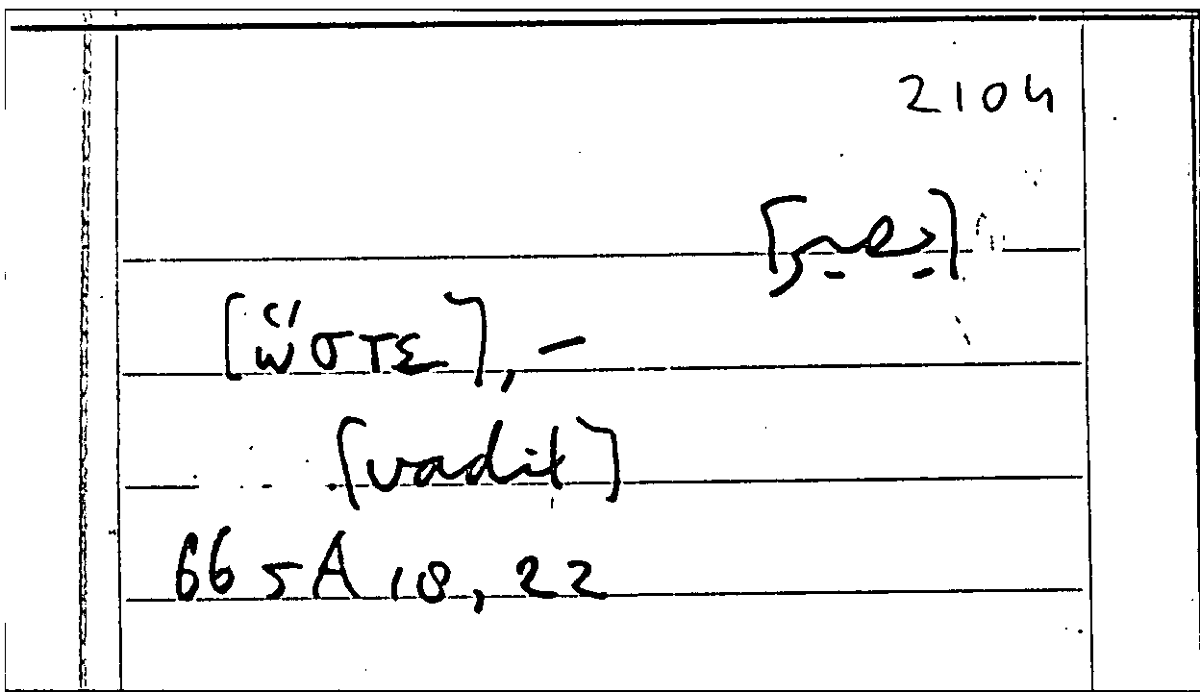 2104
[ὥστε], –
[vadit]
665A18, 22